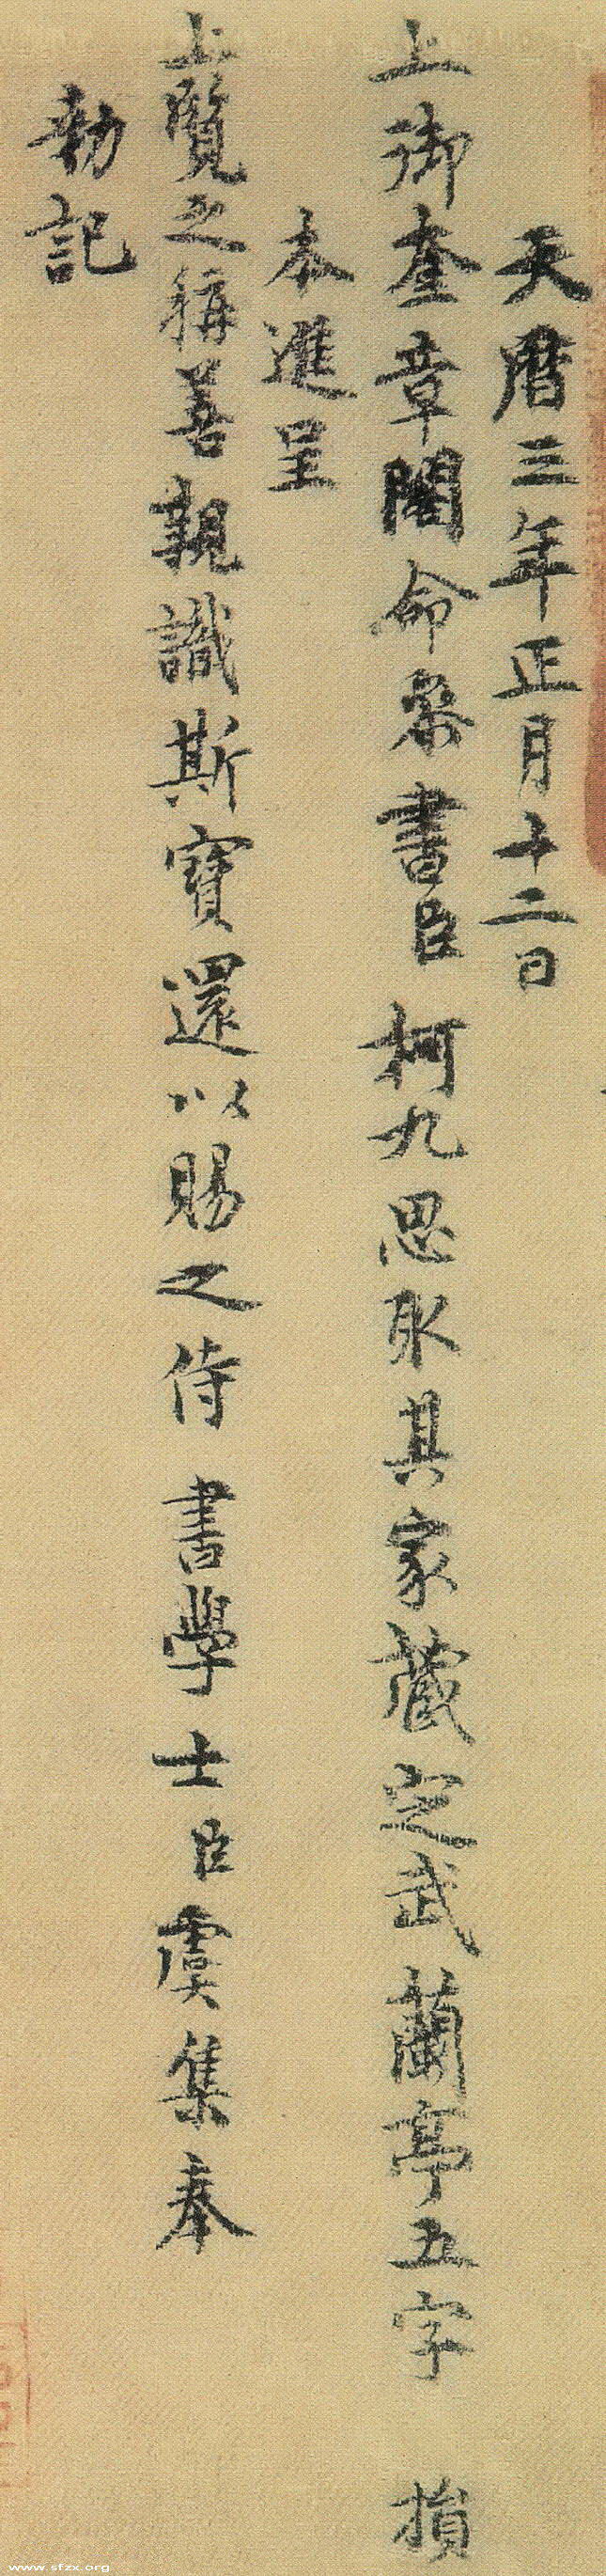 天曆三年正月十二日
上御奎章閣命參書臣柯九思取其家藏定武蘭亭五字損
本進呈
上覽之稱善親識斯寶還以賜之侍書學士臣虞集奉
勑記
www.sfzx.org